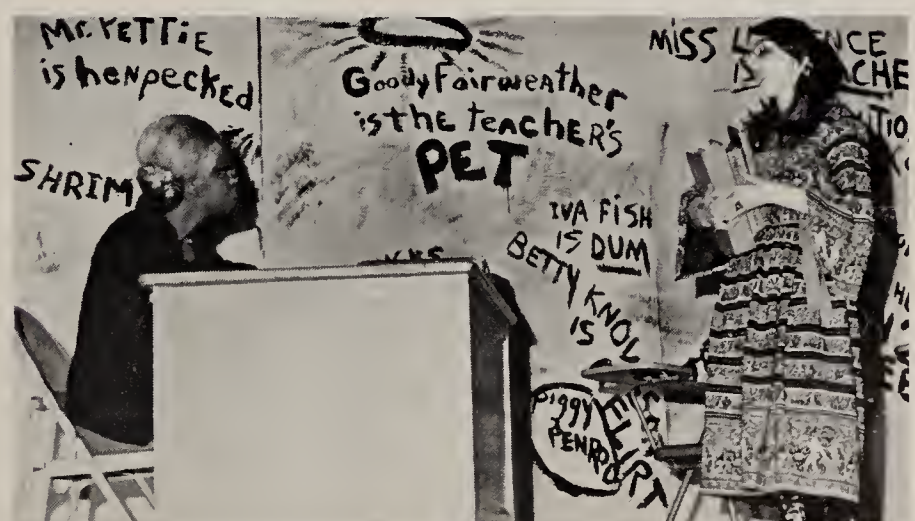 Mr. PETTiE
is henpecked
SHRIM
Goody Fairweather
is the teacher's
PET
MiSS L ENCE
IS CHE
TIO
IVA FiSH
IS DUM
BETTY KNOL
IS
PiGGY
PENRO
FLiRT